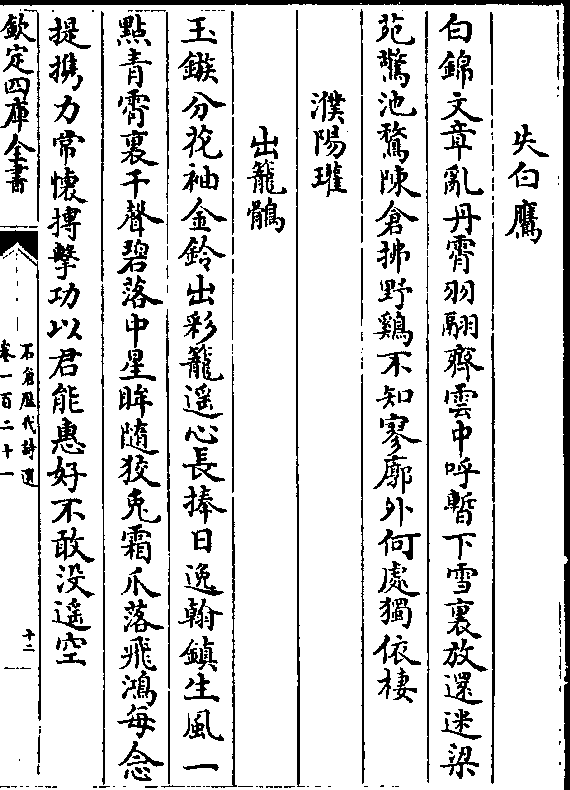 失白鷹
白錦文章亂丹霄羽翮齊雲中呼暫下雪裏放還迷梁
苑驚池鶩陳倉拂野鷄不知寥廓外何處獨依棲
濮陽瓘
出籠鶻
玉鏃分花袖金鈴出彩籠遥心長捧日逸翰鎮生風一
點青霄裏千聲碧落中星眸隨狡兎霜爪落飛鴻每念
提攜力常懷摶擊功以君能惠好不敢没遥空
欽定四庫全書
石倉歷代詩選
卷一百二十一
十二